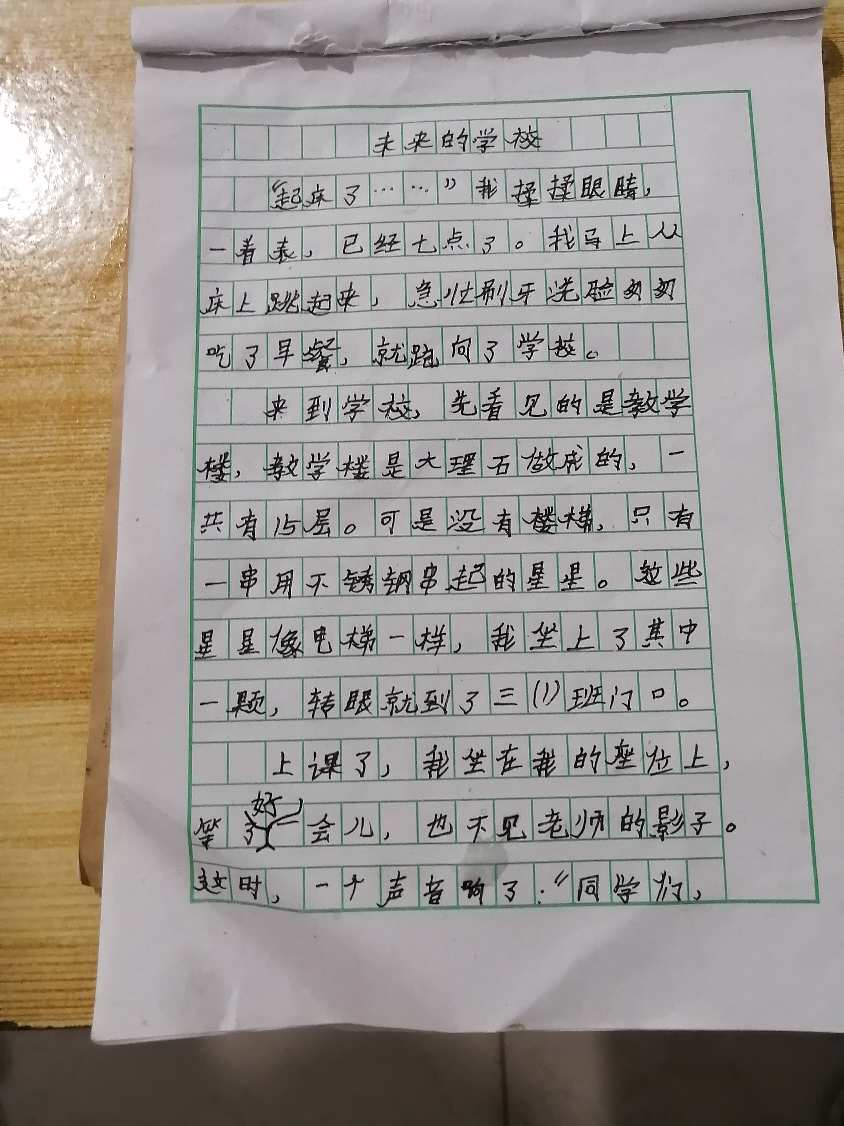 未来的学校
“起床了……”我揉揉眼睛，
一着表，已经七点了。我马上从
床上跳起来，急忙刷牙洗脸匆匆
吃了早餐，就跑向了学校。
来到学校，先看见的是教学
楼，教学楼是大理石做成的，一
共有15层。可是没有楼梯，只有
一串用不锈钢串起的星星。这些
星星像电梯一样，我坐上了其中
一颗，转眼就到了三(1)班门口。
上课了，我坐在我的座位上，
等了好一会儿，也不见老师的影子。
这时，一个声音响了：“同学们，